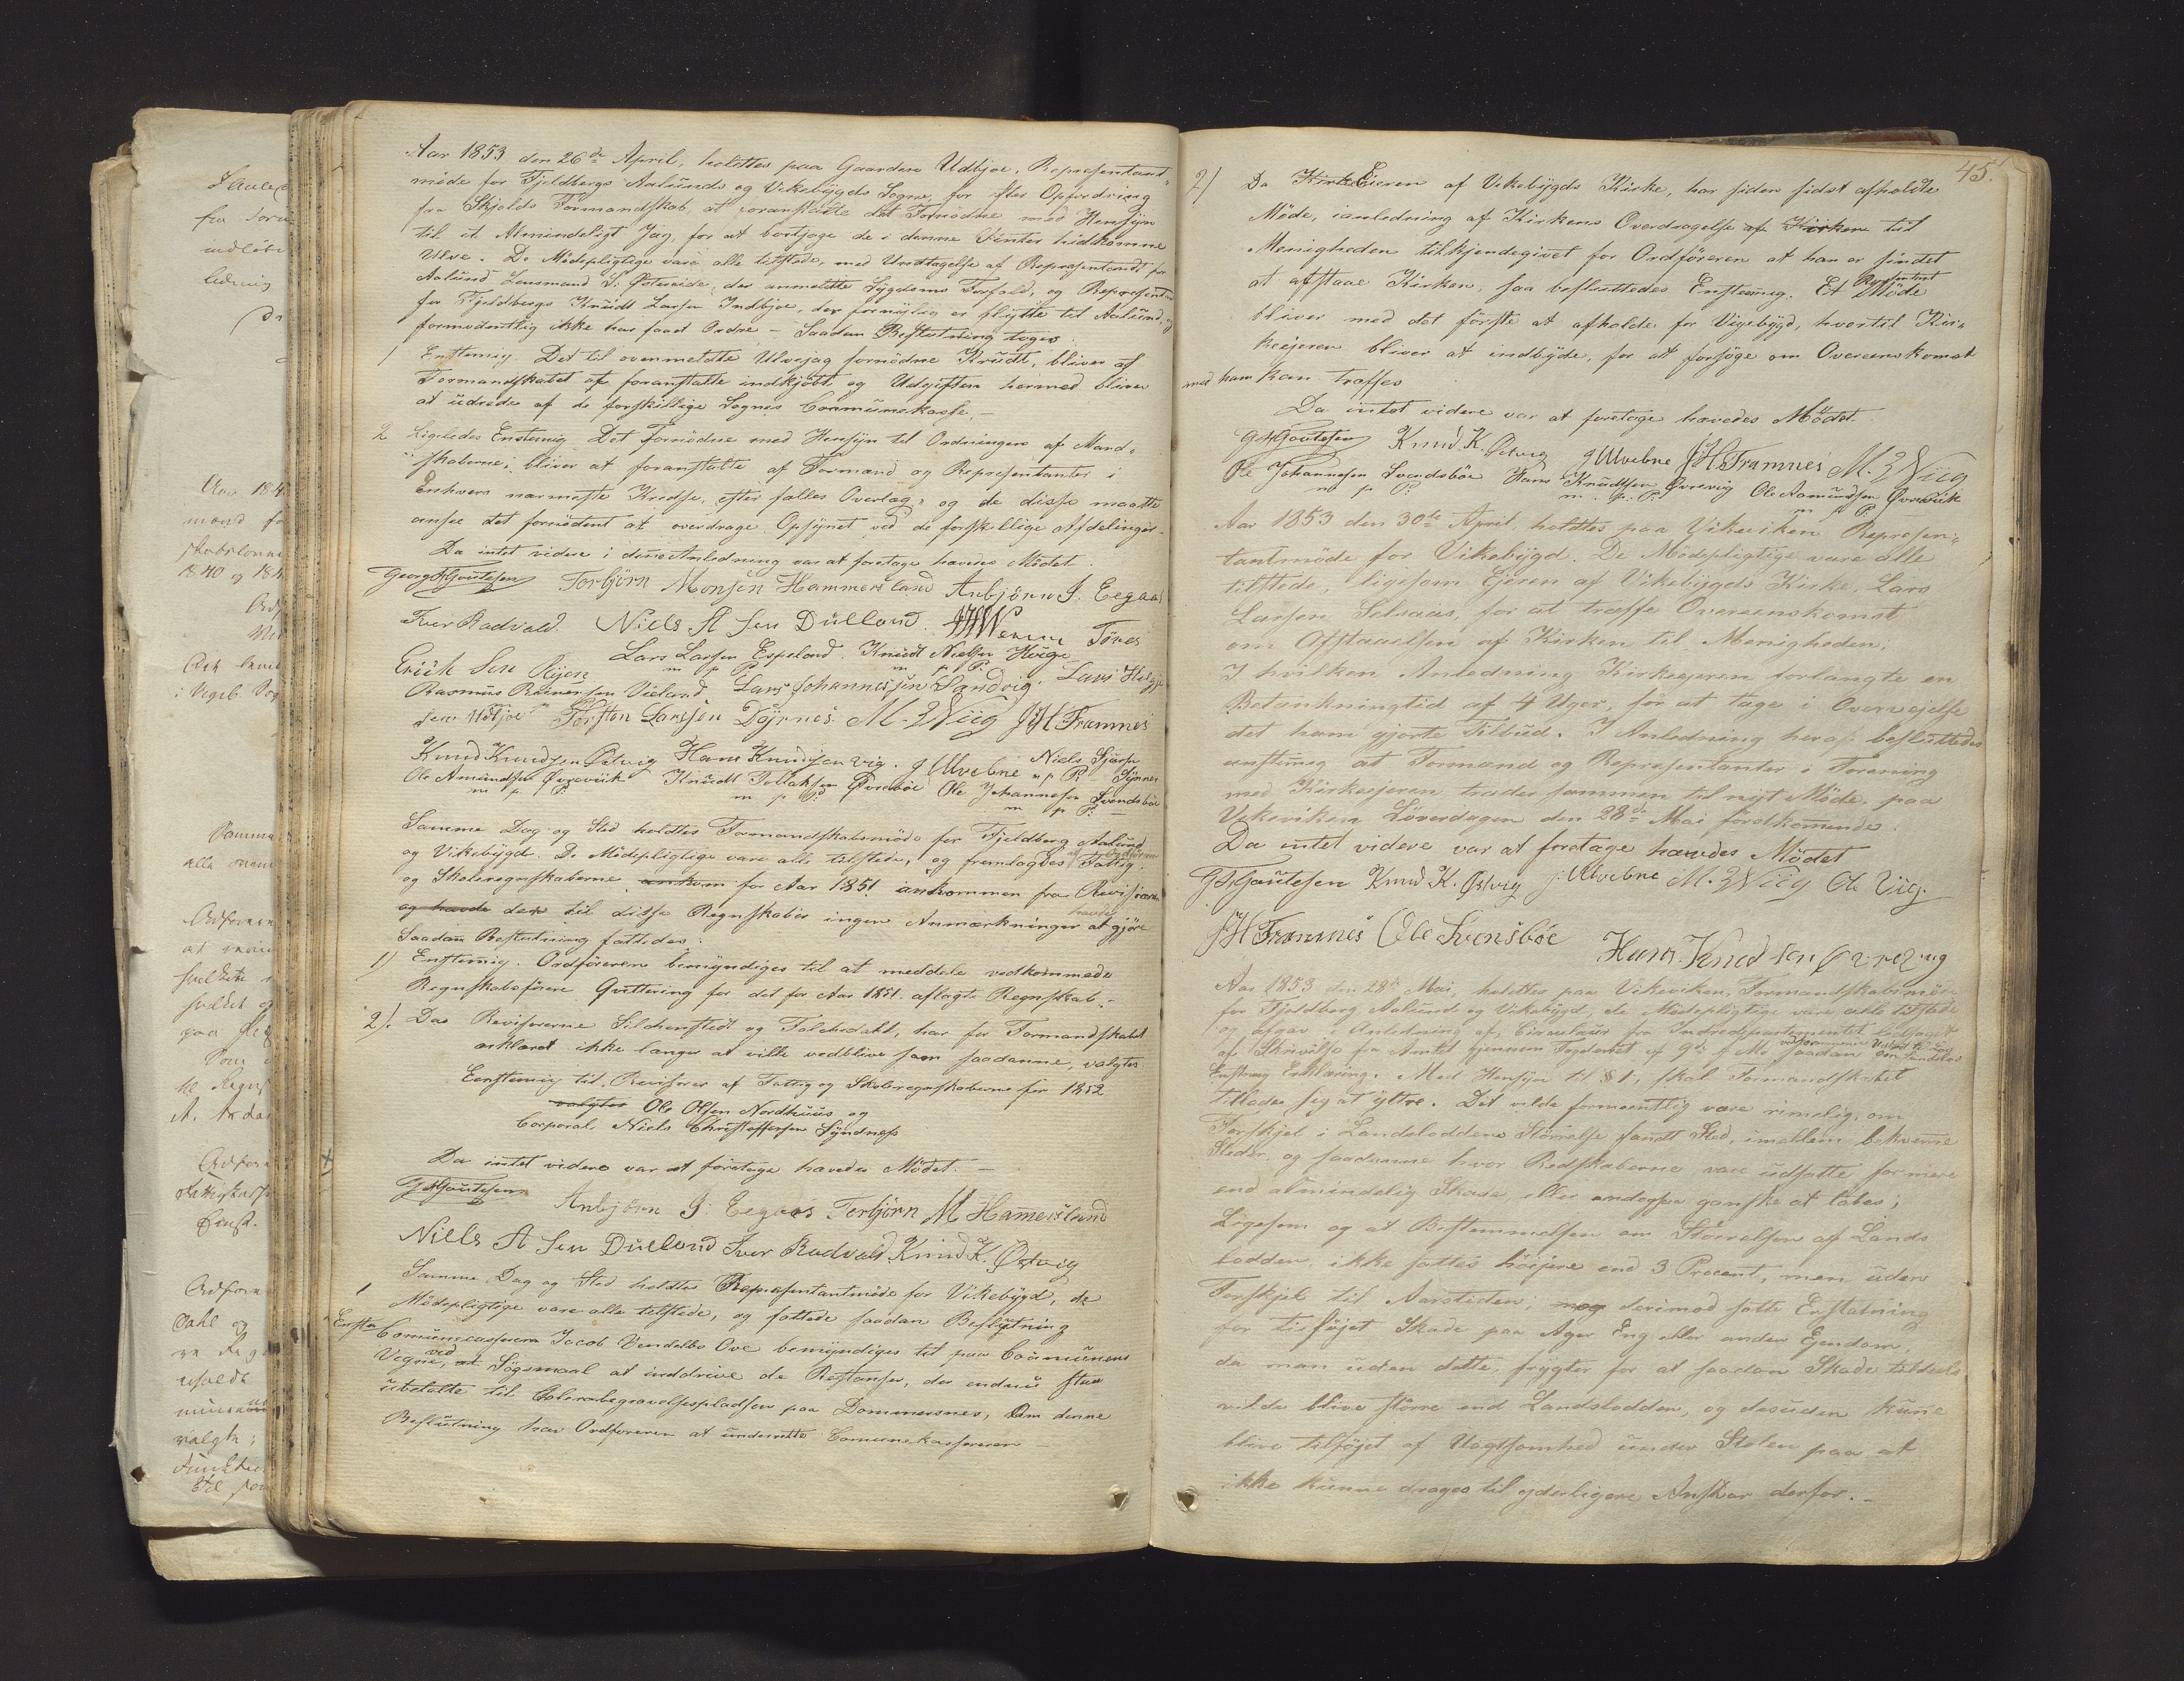 Aar 1853 den 26de April, holdtes paa Gaarden Udbjoe, Representant-
møde for Fjeldbergs Aalunds og Vikebygds Sogne, for efter Opfordring
fra Skjolds Formandskab, at foranstalte det Fornødne med Hensyn
til et Almindeligt Jag, for at bortjage de i denne Vinter hidkomne
Ulve. De Mødepligtige vare alle tilstede, med Undtagelse af Representant for
Aalund Lensmand S: Østereide, der anmeldte Sygdoms Forfald, og Representant
for Fjeldbergs Knudt Larsen Indbjoe, der fornylig er flyttet til Aalund, og
formodentlig ikke har faaet Ordre – Saadan Beslutning toges
1 Enstemig. Det til ovenmeldte Ulvejag fornødne Krudt, bliver af
Formandskabet at foranstalte indkjøbt, og Udgiften hermed bliver
at udrede af de forskillige Sognes Communekasse. –
2 Ligeledes Enstemig Det Fornødne med Hensyn til Ordningen af Mand-
skaberne, bliver at foranstalte af Formænd og Representanter i
Enhvers nærmeste Kredse, efter fælles Overlæg, og de disse maatte
ansee det fornødent at overdrage Opsynet ved de forskellige Afdelinger. –
Da intet videre i denne Anledning var at foretage hævedes Mødet.
Georg Gautesen Torbjörn Monsen Hammersland Anbjörn J. Eegaas
Iver Radvald. Niels A Sen Dülland. Tönes
Lars Larsen Espeland Knudt Nielsen Hüge
m p P m p P.
Erich Sen Öijen
Rasmus Reinersen Vieland Lars Johannessen Sandvig. Lars Helge
Sen Udbjoe Torsten Larssen Döjrnes. M. Z Viig JH Framnes
Knud Knudsen Østvig Hans Knudsen Vig. g Ulvebne Niels
m p P
Ole Amundsen Øvrevik Knudt Ole Johannesen Svendsböe
m p P. m p P. m p P. –
Samme Dag og Sted holdtes Formandskabsmøde for Fjeldberg Aalund
og Vikebygd. De Mødepligtige vare alle tilstede, og fremlagdes af Ordføreren Fattig
og Skoleregnskaberne ankom for Aar 1851 ankommen fra Revisorerne
og havde der til disse Regnskaber ingen Anmærkninger havde at gjøre
Saadan Beslutning fattedes:
1) Enstemig. Ordføreren bemyndiges til at meddele vedkommede
Regnskabsførere Qvittering for det for Aar 1851. aflagte Regnskab. –
2). Da Revisorerne Sildenstedt og Falchedahl, har for Formandskabet
erklæret ikke længer at ville vedblive som saadanne, valgtes
Eenstemig til Revisorer af Fattig og Skoleregnskaberne for 1852
valgtes Ole Olsen Nordhuus og
Corporal. Niels Christoffersen Syndnes
Da intet videre var at foretage hævedes Mødet. –
G Gautesen Anbjörn J: Eegaas Torbjörn M Hamersland
Niells A Sen Dülland Iver Radvald Knud K. Østvig
Samme Dag og Sted holdtes Representantmøde for Vikebygd, de
Mødepligtige vare alle tilstede, og fattede saadan Beslutning
1 Enst: Communecasseren Jacob Vendelbo Ove bemyndiges til paa Communens
Vegne, at ved Søgsmaal at inddrive de Restanser, der endnu staa
ubetalte til Colerabegravelsespladsen paa Dommersnes, Om denne
Beslutning har Ordføreren at underrette Communekasseren
45.
2) Da Kirkeeieren af Vikebygds Kirke, har siden sidst afholdte
Møde, ianledning af Kirkens Overdragelse af Kirken til
Menigheden tilkjendegivet for Ordføreren at han er sindet
at afstaae Kirken, saa besluttedes Enstemig. Et Represtant Møde
bliver med det første at afholde for Vigebygd, hvortil Kir-
keejeren bliver at indbyde, for at forsøge om Overeenskomst
med ham kan træffes
Da intet videre var at foretage hævedes Mødet.
G Gautesen Knud K. Østvig g Ulvebne JH Framnes M. Z Viig
Ole Johannesen Svendsböe Hans Knudtsen Øvrevig Ole Aamundsen Øvrevik
m p P. m. p. P. m p P.
Aar 1853 den 30te April, holdtes paa Vikeviken Represen-
tantmøde for Vikebygd. De Mødepligtige vare alle
tilstede, ligesom Ejeren af Vikebygds Kirke, Lars
Larsen Selsaas, for at træffe Overeenskomst
om Afstaaelsen af Kirken til Menigheden;
I hvilken Anledning Kirkeejeren forlangte en
Betænkningtid af 4 Uger, for at tage i Overvejelse
det ham gjorte Tilbud. I Anledning heraf besluttedes
enstemig at Formænd og Representanter i Forening
med Kirkeejeren træder sammen til nyt Møde, paa
Vikeviken Løverdagen den 28de Mai førstkommende.
Da intet videre var at foretage hævedes Mødet
G Gautesen Knud K. Østvig j: Ulvebne M. Z Viig Ole Viig.
JH Framnes Ole Svensböe Hans Knud sen Øvrevig
Aar 1853 den 28de Mai, holdtes paa Vikeviken, Formandskabsmøde
for Fjeldberg Aalund og Vikebygd, de Mødepligtige vare alle tilstede
og afgav i Anledning af Circulair fra Indredepartementet ledsaget
af Skrivelse fra Amtet gjennem Fogderiet af 9de d M: saadan
Enstemig Erklæring. Med Hensyn til § 1, skal Formandskabet
tillade sig at yttre. Det vilde formeentlig være rimelig, om
Forskjel i Landsloddens Størrelse fandt Sted, imellem bekvemme
Steder, og saadanne hvor Redskaberne vare udsatte for mere
end almindelig Skade, eller endogsaa ganske at tabes;
Ligesom og at Bestemmelsen om Størrelsen af Lands
lodden, ikke sattes höiere end 3 Procent, men uden
Forskjel til Aarstiden; mog derimod satte Erstatning
for tilföjet Skade paa Ager Eng eller anden Ejendom,
da man uden dette, frygter for at saadan Skade tildeels
vilde blive större end Landslodden, og desuden kune
blive tilføjet af Uagtsomhed under Stolen paa at
ikke kunne drages til yderligere Ansvar derfor. –